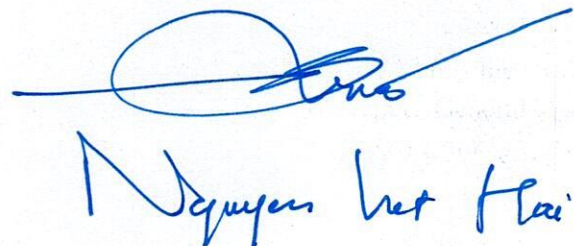 Nguyen Viet Hai